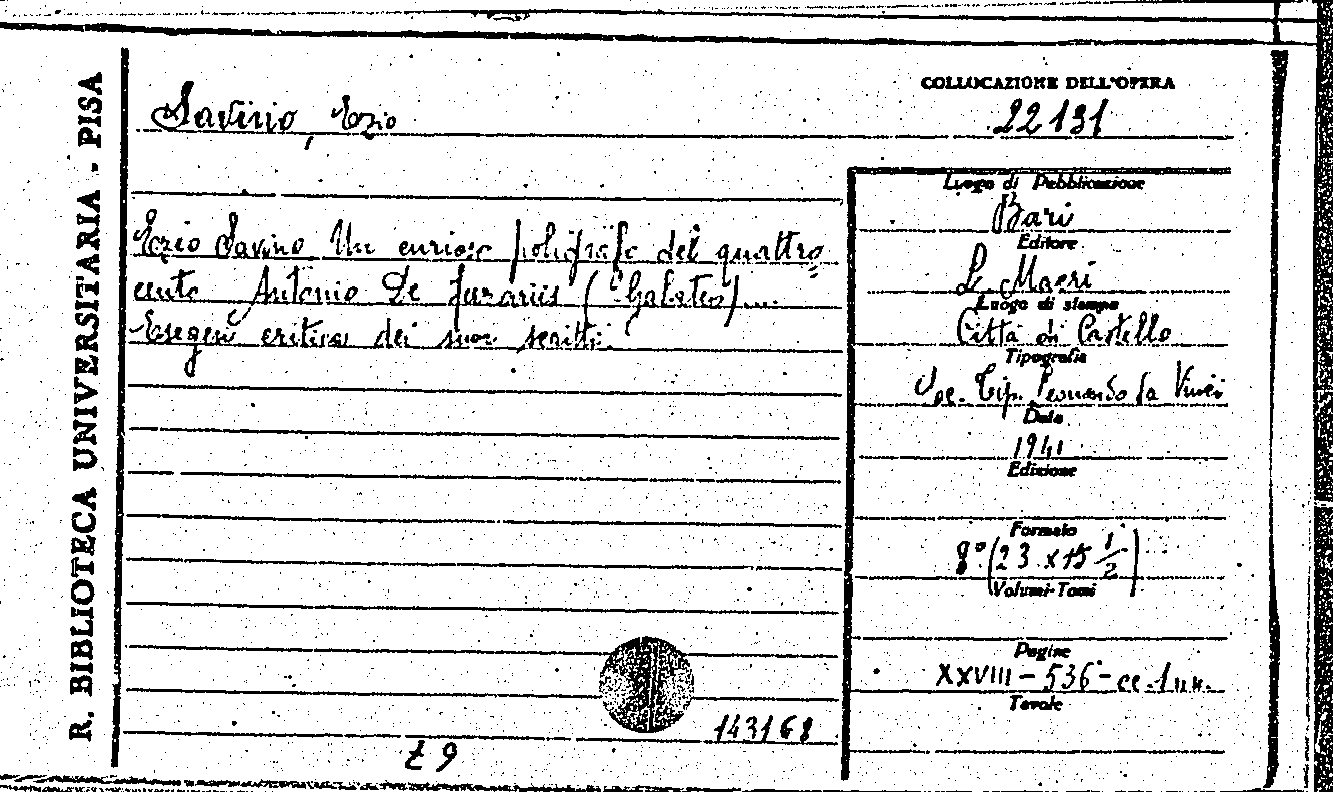 R. BIBLIOTECA UNIVERSITARIA - PISA
Savino, Ezio
COLLOCAZIONE DELL'OPERA
22131
Ezio Savino. Un curioso poligrafo del quattro=
cento Antonio De Ferrariis (Galateo)....
Esegesi critica dei suoi scritti.
Luogo di Pubblicazione
Bari
Editore
L. Macrì
Luogo di stampa
Città di Castello
Tipografia
Soc. Tip. Leonardo da Vinci
Data
1941
Edizione
Formato
8° (23 x 15 1/2)
Volumi-Tomi
Pagine
XXVIII - 536 - cc. 1 nn.
Tavole
143168
t 9